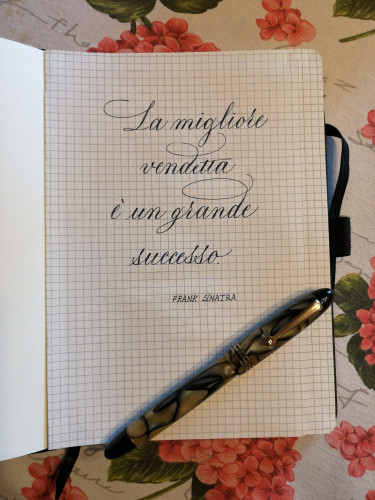 La migliore
vendetta
è un grande
successo.
FRANK SINATRA